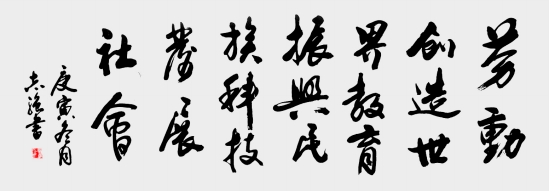 劳動
創造世
界教育
振興民
族科技
發展
社會
庚寅冬月
志強書